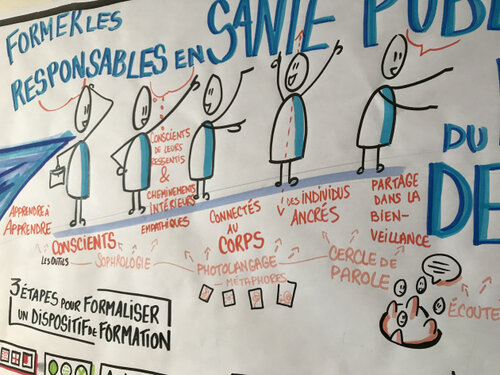 FORMER LES
RESPONSABLES EN SANTÉ
DU
APPRENDRE À
APPRENDRE
CONSCIENTS
LES OUTILS
CONSCIENTS
DE LEURS
RESSENTIS
&
CHEMINEMENTS
INTÉRIEURS
EMPATHIQUES
SOPHROLOGIE
CONNECTÉS
AU
CORPS
PHOTOLANGAGE
MÉTAPHORES
DES INDIVIDUS
ANCRÉS
CERCLE DE
PAROLE
PARTAGE
DANS LA
BIEN-
VEILLANCE
ÉCOUTE
3 ÉTAPES POUR FORMALISER
UN DISPOSITIF DE FORMATION